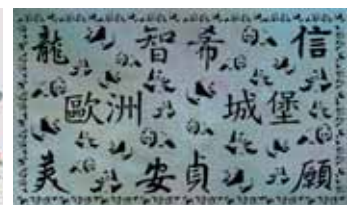 龍 智 希 信
歐洲 城堡
美 安 貞 願